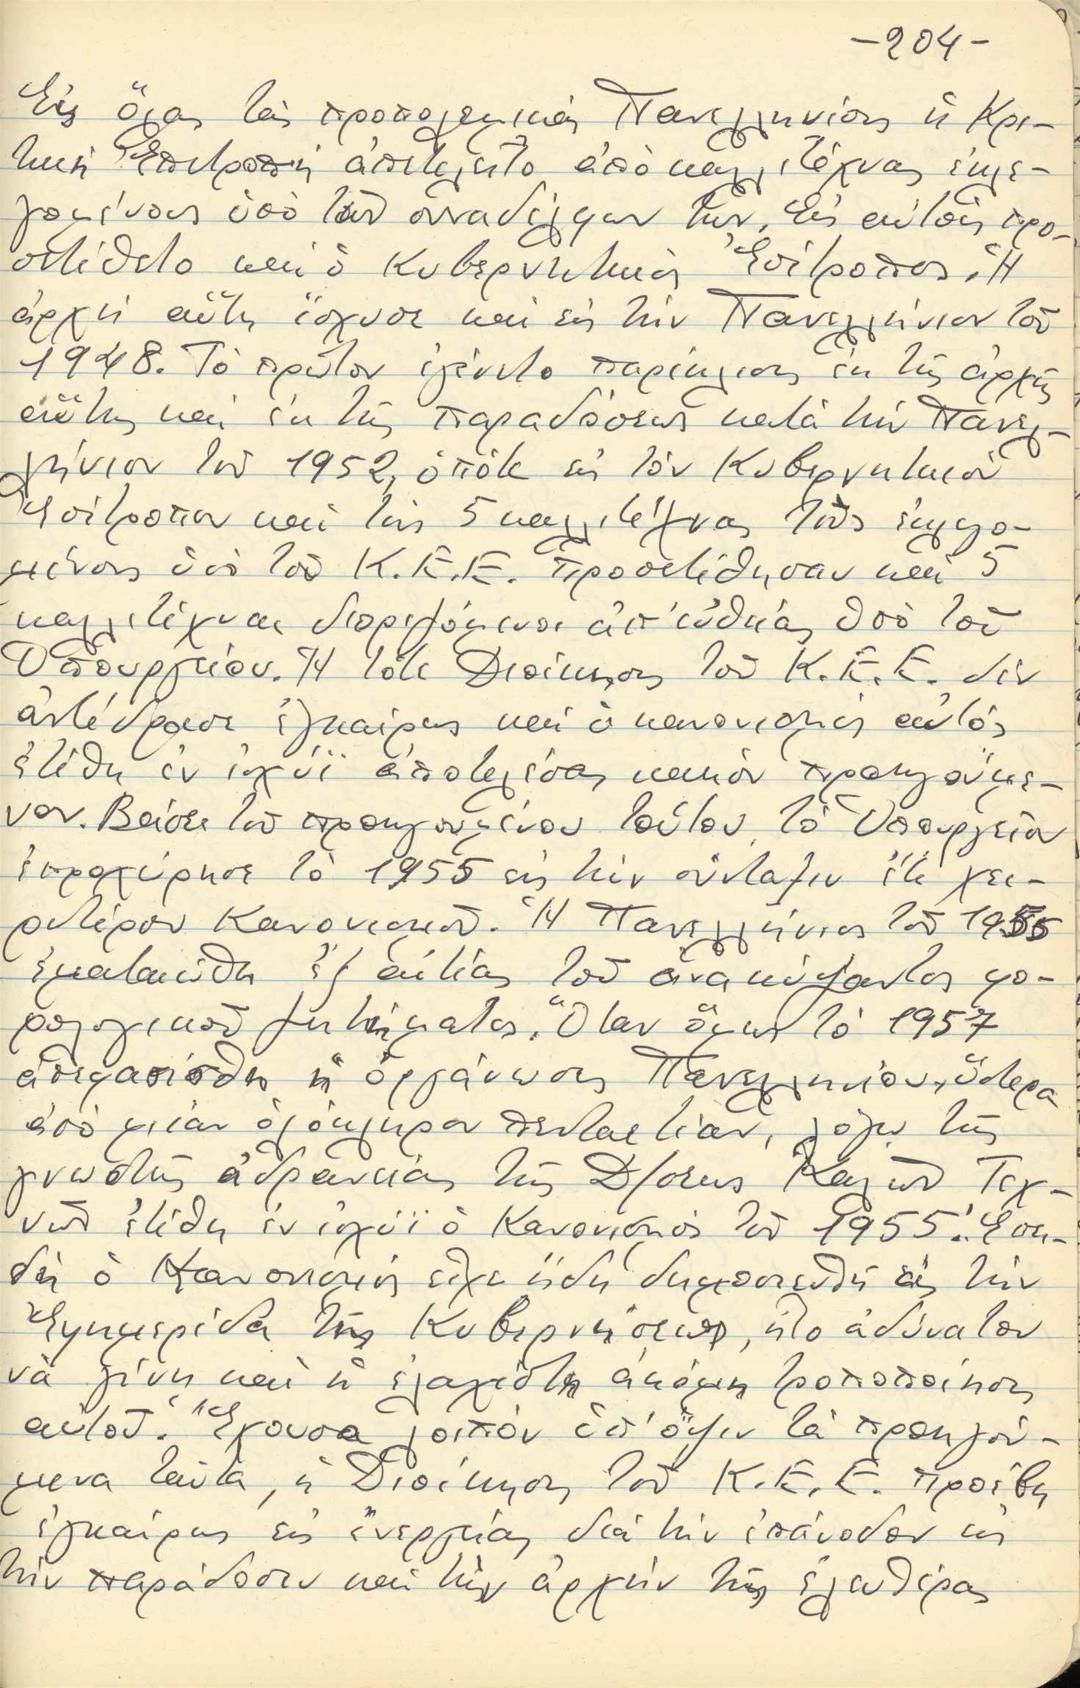 -204-
Εἰς ὅλας τὰς προπολεμικὰς Πανελληνίους ἡ Κρι-
τικὴ Ἐπιτροπὴ ἀπετελεῖτο ἀπὸ καλλιτέχνας ἐκλε-
γομένους ὑπὸ τῶν συναδέλφων των. Εἰς αὐτοὺς προ-
σετίθετο καὶ ὁ Κυβερνητικὸς Ἐπίτροπος. Ἡ
ἀρχὴ αὕτη ἴσχυσε καὶ εἰς τὴν Πανελλήνιον τοῦ
1948. Τὸ πρῶτον ἐγένετο παρέκλισις ἐκ τῆς ἀρχῆς
αὐτῆς καὶ ἐκ τῆς παραδόσεως κατὰ τὴν Πανελ-
λήνιον τοῦ 1952, ὁπότε εἰς τὸν Κυβερνητικὸν
Ἐπίτροπον καὶ τοὺς 5 καλλιτέχνας τοὺς ἐκλεγο-
μένους ὑπὸ τοῦ Κ.Ε.Ε. προσετέθησαν καὶ 5
καλλιτέχναι διοριζόμενοι ἀπ' εὐθείας ὑπὸ τοῦ
Ὑπουργείου. Ἡ τότε Διοίκησις τοῦ Κ.Ε.Ε. δὲν
ἀντέδρασε ἐγκαίρως καὶ ὁ κανονισμὸς αὐτὸς
ἐτέθη ἐν ἰσχύϊ ἀποτελέσας κακὸν προηγούμε-
νον. Βάσει τοῦ προηγουμένου τούτου, τὸ Ὑπουργεῖον
ἐπροχώρησε τὸ 1955 εἰς τὴν σύνταξιν ἔτι χει-
ροτέρου Κανονισμοῦ. Ἡ Πανελλήνιος τοῦ 1955
ἐματαιώθη ἐξ αἰτίας τοῦ ἀνακύψαντος φο-
ρολογικοῦ ζητήματος. Ὅταν ὅμως τὸ 1957
ἀπεφασίσθη ἡ ὀργάνωσις Πανελληνίου, ὕστερα
ἀπὸ μίαν ὁλόκληρον πενταετίαν, λόγῳ τῆς
γνωστῆς ἀδρανείας τῆς Δ/σεως Καλῶν Τεχ-
νῶν ἐτέθη ἐν ἰσχύϊ ὁ Κανονισμὸς τοῦ 1955. Ἐπει-
δὴ ὁ Κανονισμὸς εἶχε ἤδη δημοσιευθῆ εἰς τὴν
Ἐφημερίδα τῆς Κυβερνήσεως, ἦτο ἀδύνατον
νὰ γίνῃ καὶ ἡ ἐλαχίστη ἀκόμη τροποποίησις
αὐτοῦ. Ἔχουσα λοιπὸν ὑπ' ὄψιν τὰ προηγού-
μενα ταῦτα, ἡ Διοίκησις τοῦ Κ.Ε.Ε. προέβη
ἐγκαίρως εἰς ἐνεργείας διὰ τὴν ἐπάνοδον εἰς
τὴν παράδοσιν καὶ τὴν ἀρχὴν τῆς ἐλευθέρας